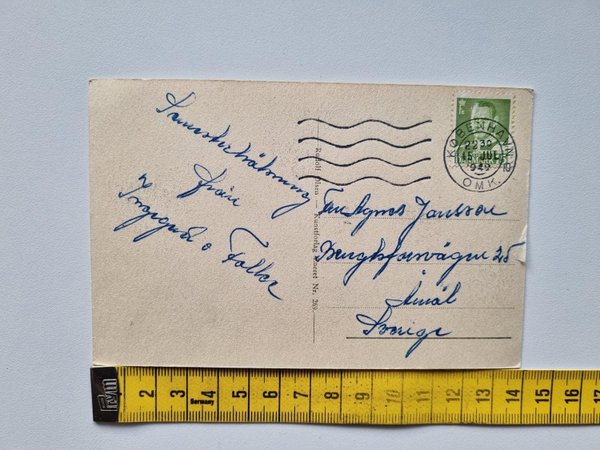 Semesterhälsning
från
Ingegerd o Folke
Rudolf Olsen — Kunstforlag Eneret Nr. 269
KØBENHAVN
15 JUL
1949
OMK.
Agnes Jansson
25
Åmål
Sverige
2 3 4 5 6 7 8 9 10 11 12 13 14 15 16 17
Germany